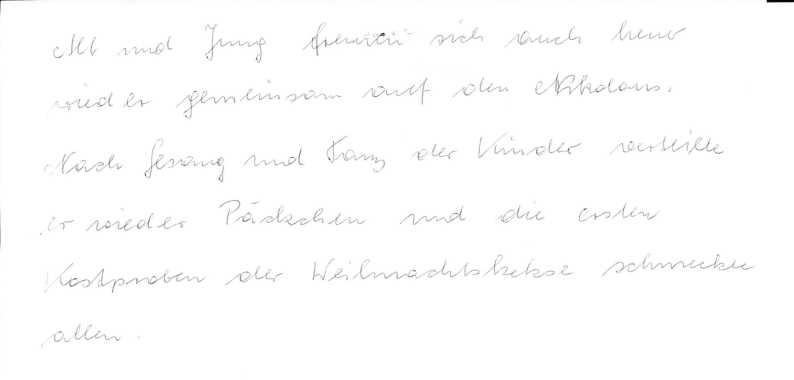 Alt und Jung freuten sich auch heuer
wieder gemeinsam auf den Nikolaus.
Nach Gesang und Tanz der Kinder verteilte
er wieder Päckchen und die ersten
Kostproben der Weihnachtskekse schmeckte
allen.